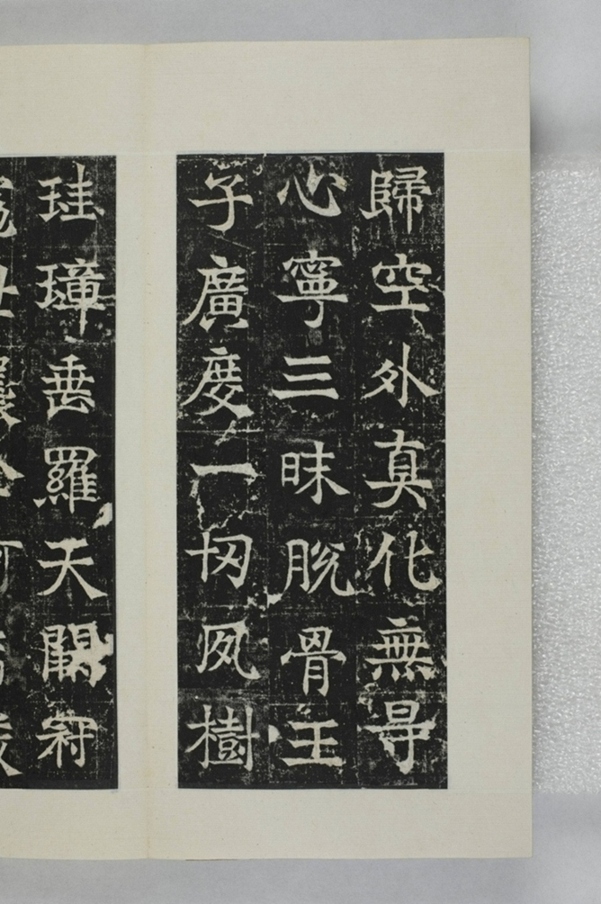 歸空外真化無㝵
心寧三昧脫骨王
子廣度一切夙樹
珪璋垂羅天闕冠